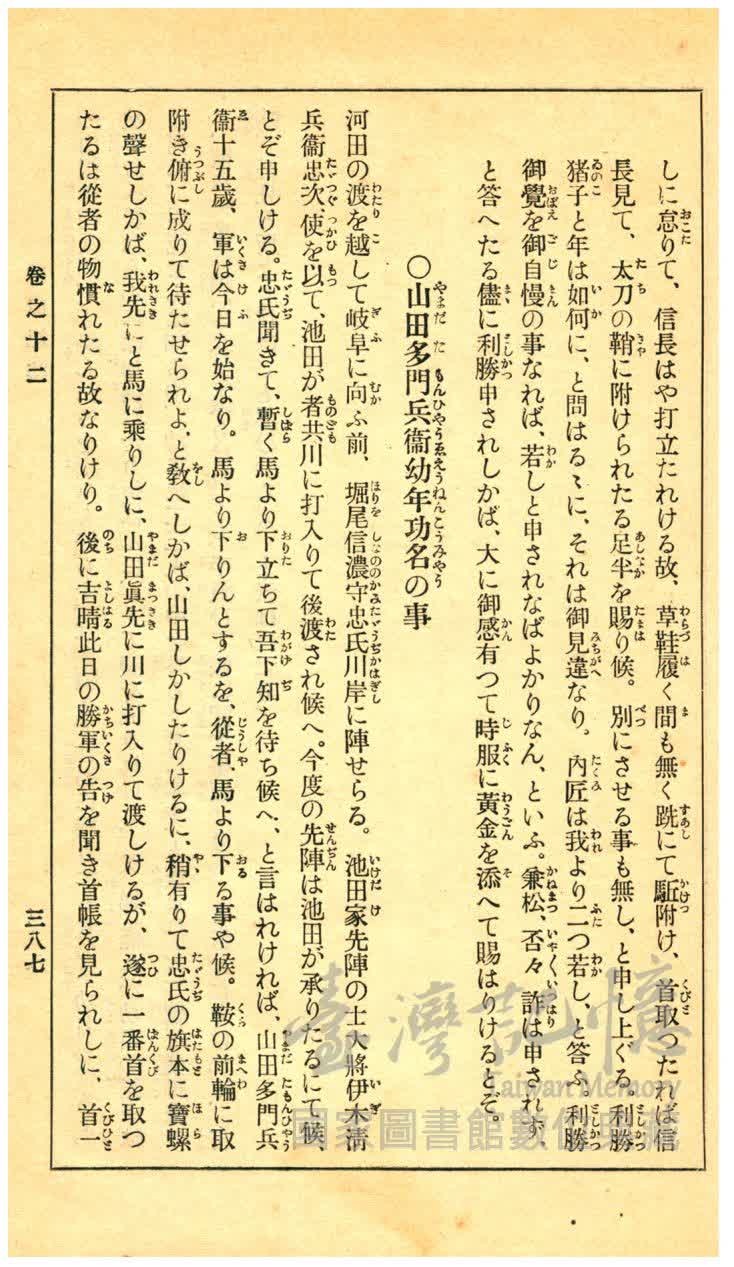 しに怠りて、信長はや打立たれける故、草鞋履く間も無く跣にて駈附け、首取つたれば信
長見て、太刀の鞘に附けられたる足半を賜り候。別にさせる事も無し、と申し上ぐる。利勝
猪子と年は如何に、と問はるゝに、それは御見違なり。內匠は我より二つ若し、と答ふ。利勝
御覺を御自慢の事なれば、若しと申されなばよかりなん、といふ。兼松、否々詐は申されず、
と答へたる儘に利勝申されしかば、大に御感有つて時服に黃金を添へて賜はりけるとぞ。
〇山田多門兵衞幼年功名の事
河田の渡を越して岐阜に向ふ前、堀尾信濃守忠氏川岸に陣せらる。池田家先陣の士大將伊木淸
兵衞忠次使を以て、池田が者共川に打入りて後渡され候へ。今度の先陣は池田が承りたるにて候、
とぞ申しける。忠氏聞きて、暫く馬より下立ちて吾下知を待ち候へ、と言はれければ、山田多門兵
衞十五歲、軍は今日を始なり。馬より下りんとするを、從者、馬より下る事や候。鞍の前輪に取
附き俯に成りて待たせられよ、と敎へしかば、山田しかしたりけるに、稍有りて忠氏の旗本に寶螺
の聲せしかば、我先にと馬に乘りしに、山田眞先に川に打入りて渡しけるが、遂に一番首を取つ
たるは從者の物慣れたる故なりけり。後に吉晴此日の勝軍の告を聞き首帳を見られしに、首一
卷之十二
三八七
臺灣記憶
Taiwan Memory
國家圖書館數位典藏